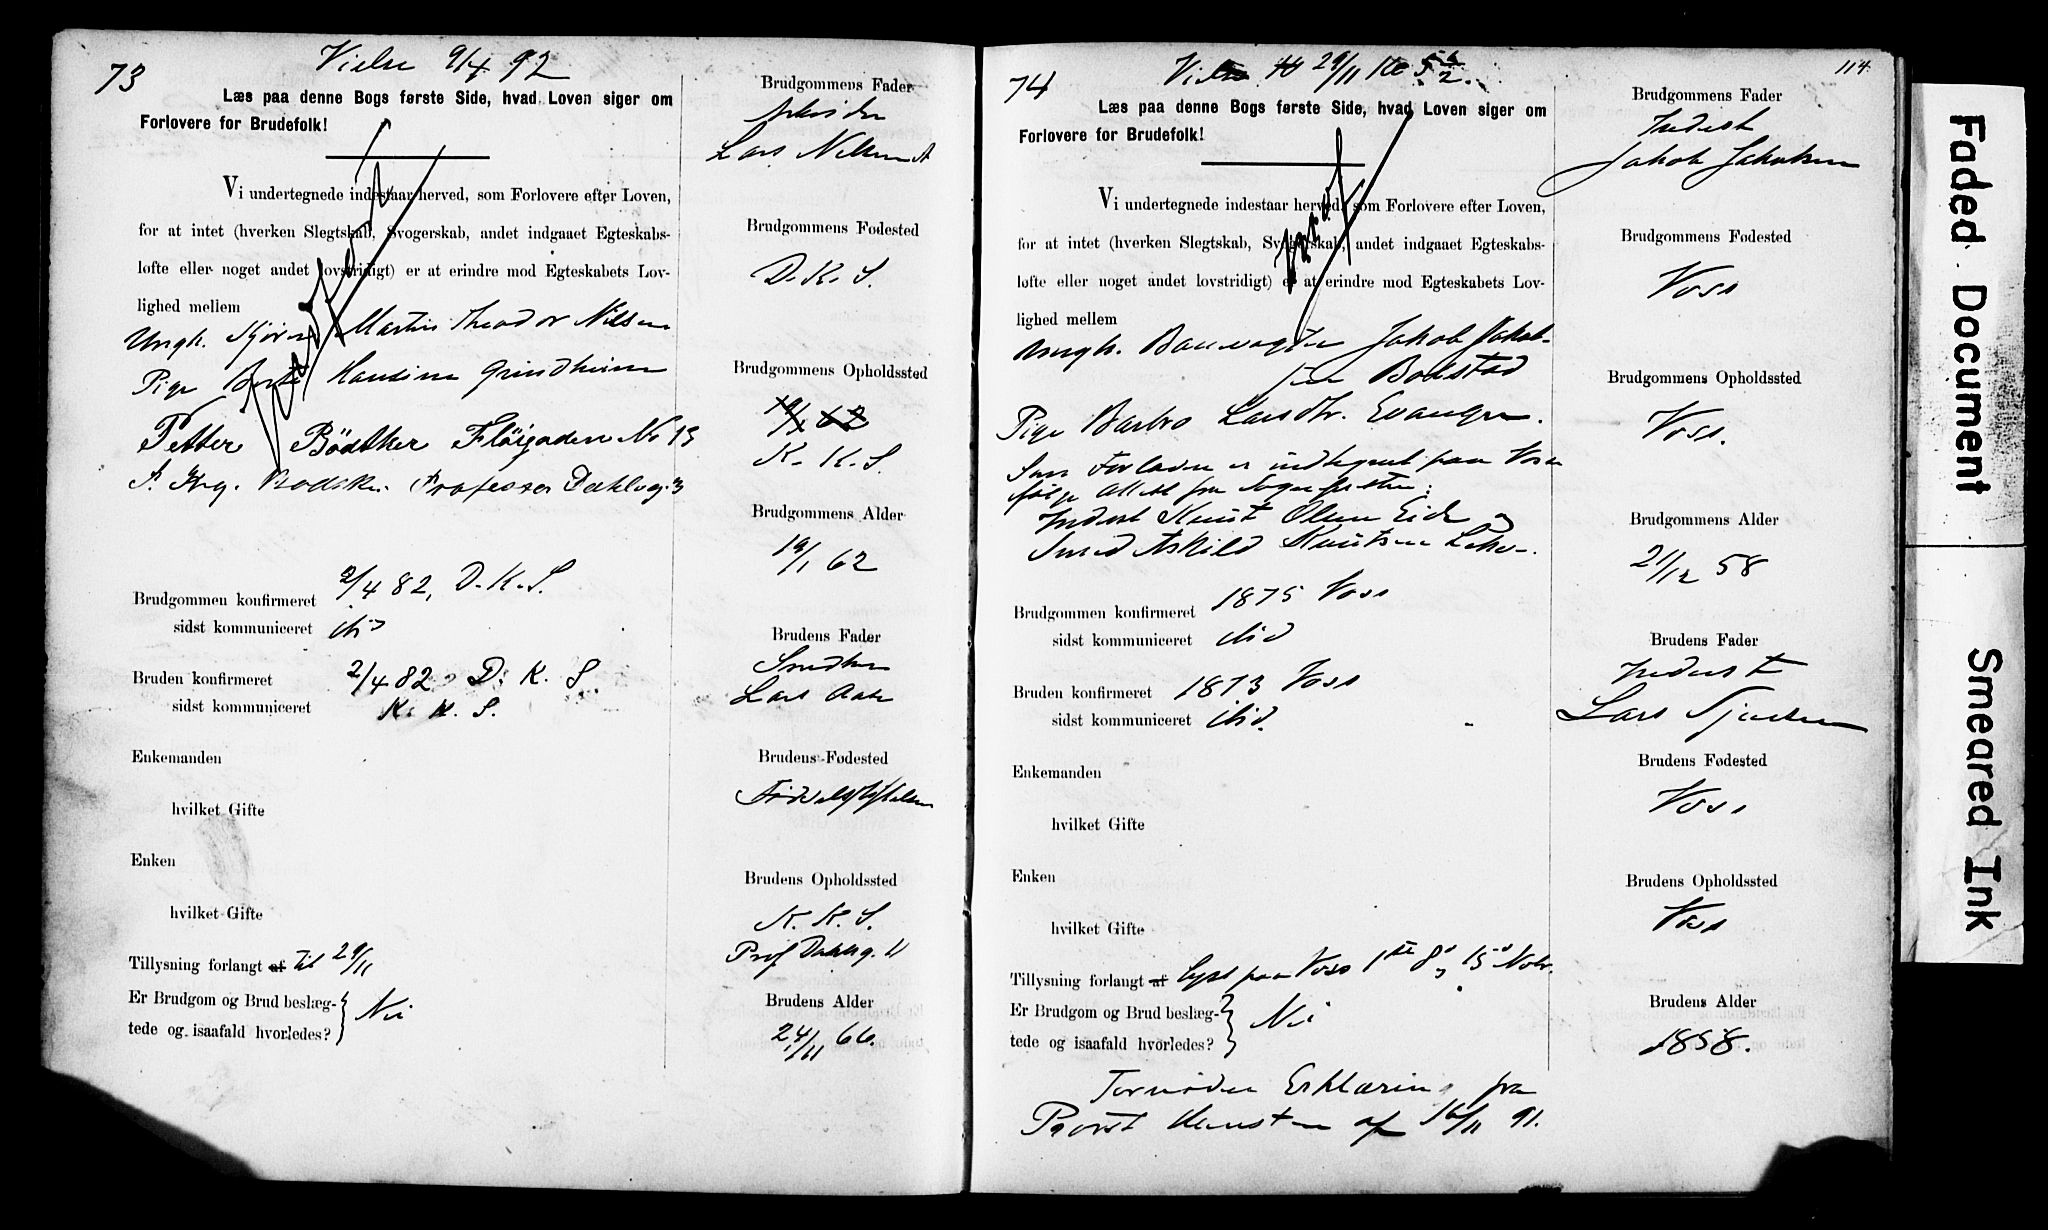 73
Vielse 9/4 92
Læs paa denne Bogs første Side, hvad Loven siger om
Forlovere for Brudefolk!
Vi undertegnede indestaar herved, som Forlovere efter Loven,
for at intet (hverken Slegtskab, Svogerskab, andet indgaaet Egteskabs-
løfte eller noget andet lovstridigt) er at erindre mod Egteskabets Lov-
lighed mellem
Ungk. Martin Theodor Nilsen
Pige Hansine Grindheim
Petter Bödtker Fløigaden No 13
Professor Dahls g. 3
Brudgommen konfirmeret 2/4 82, D. K. S.
sidst kommuniceret ibid
Bruden konfirmeret 2/4 82 D. K. S.
sidst kommuniceret K. K. S.
Enkemanden
hvilket Gifte
Enken
hvilket Gifte
Tillysning forlangt af til 29/11
Er Brudgom og Brud beslæg-
tede og isaafald hvorledes? Nei
Brudgommens Fader
Arbeider
Lars Nilsen
Brudgommens Fødested
D. K. S.
Brudgommens Opholdssted
19/1 62
K. K. S.
Brudgommens Alder
19/1 62
Brudens Fader
Snedker
Lars
Brudens Fødested
Fødselsstiftelsen
Brudens Opholdssted
K. K. S.
Prof Dahls g. 11
Brudens Alder
24/11 66.
74
Vielse 29/11 Kl 5 1/2.
114
Læs paa denne Bogs første Side, hvad Loven siger om
Forlovere for Brudefolk!
Vi undertegnede indestaar herved, som Forlovere efter Loven,
for at intet (hverken Slegtskab, Svogerskab, andet indgaaet Egteskabs-
løfte eller noget andet lovstridigt) er at erindre mod Egteskabets Lov-
lighed mellem
Ungk. Banevogter Jakob Jakob-
sen Bolstad
Pige Barbro Larsdtr. Evanger.
Som Forlovere er indtegnet paa Voss
ifølge Attest fra Sognepresten:
Inderst Knut Olsen Eide og
Smed Askild Knutsen
Brudgommen konfirmeret 1875 Voss
sidst kommuniceret ibid
Bruden konfirmeret 1873 Voss
sidst kommuniceret ibid.
Enkemanden
hvilket Gifte
Enken
hvilket Gifte
Tillysning forlangt af lyst paa Voss 1ste 8de 15de Novbr.
Er Brudgom og Brud beslæg-
tede og isaafald hvorledes? Nei
Fornøden Erklæring fra
Provst af 16/11 91.
Brudgommens Fader
Inderst
Jakob Jakobsen
Brudgommens Fødested
Voss
Brudgommens Opholdssted
Voss.
Brudgommens Alder
21/12 58
Brudens Fader
Inderst
Lars
Brudens Fødested
Voss
Brudens Opholdssted
Voss
Brudens Alder
1858.
Faded Document
Smeared Ink